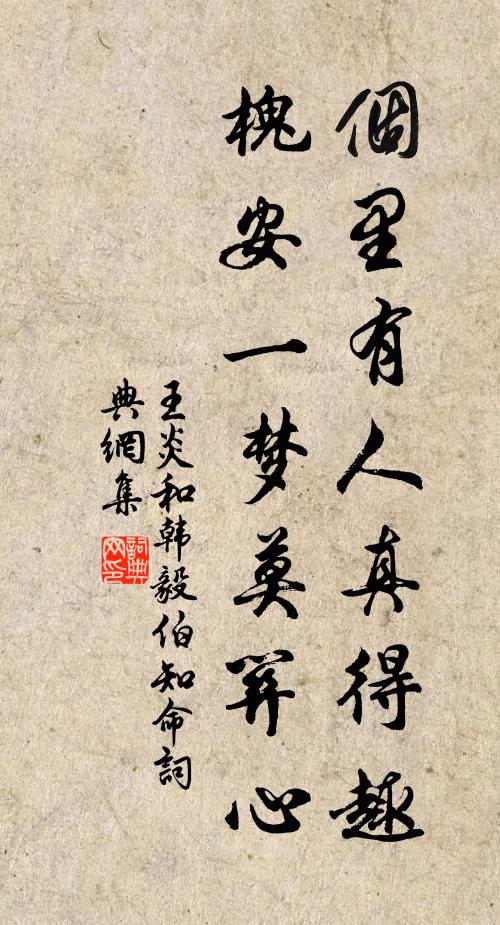 個里有人真得趣
槐安一梦莫關心
王炎和韩毅伯知命詞
典網集
詞典網印